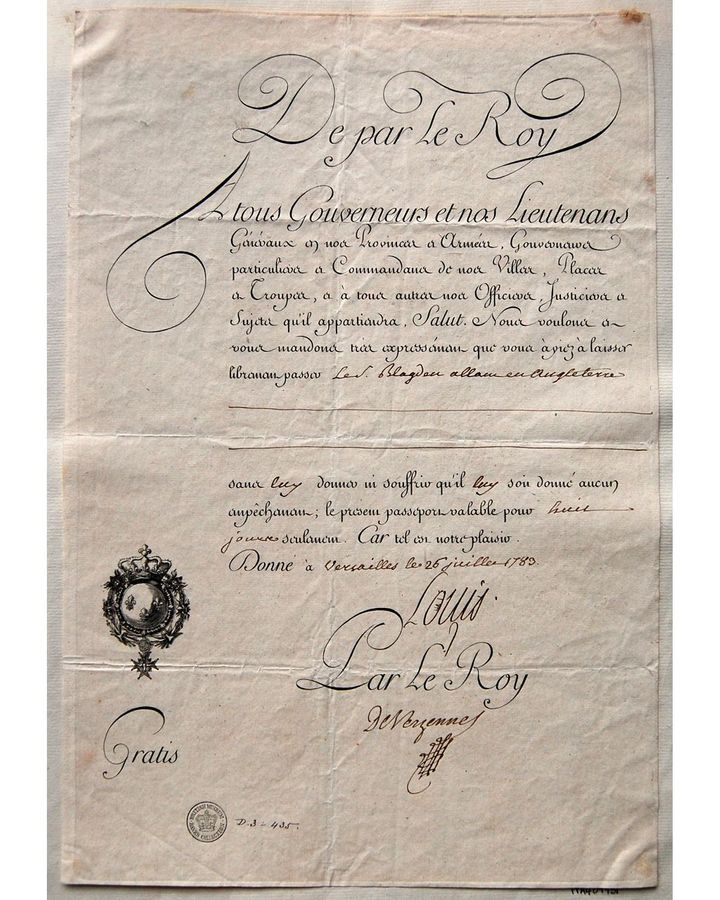 De par Le Roy
A tous Gouverneurs et nos Lieutenans
Généraux en nos Provinces et Armées, Gouverneurs
particuliers et Commandans de nos Villes, Places
et Troupes, et à tous autres nos Officiers, Justiciers et
Sujets qu'il appartiendra, Salut. Nous voulons et
vous mandons très expressément que vous ayiez à laisser
librement passer Le S. Blagden allant en Angleterre
sans luy donner ni souffrir qu'il luy soit donné aucun
empêchement; le présent passeport valable pour huit
jours seulement. Car tel est notre plaisir.
Donné à Versailles le 26 juillet 1783.
Louis
Par Le Roy
De Vergennes
Gratis
BRITISH MUSEUM
BANKS COLLECTION
D.3-435.